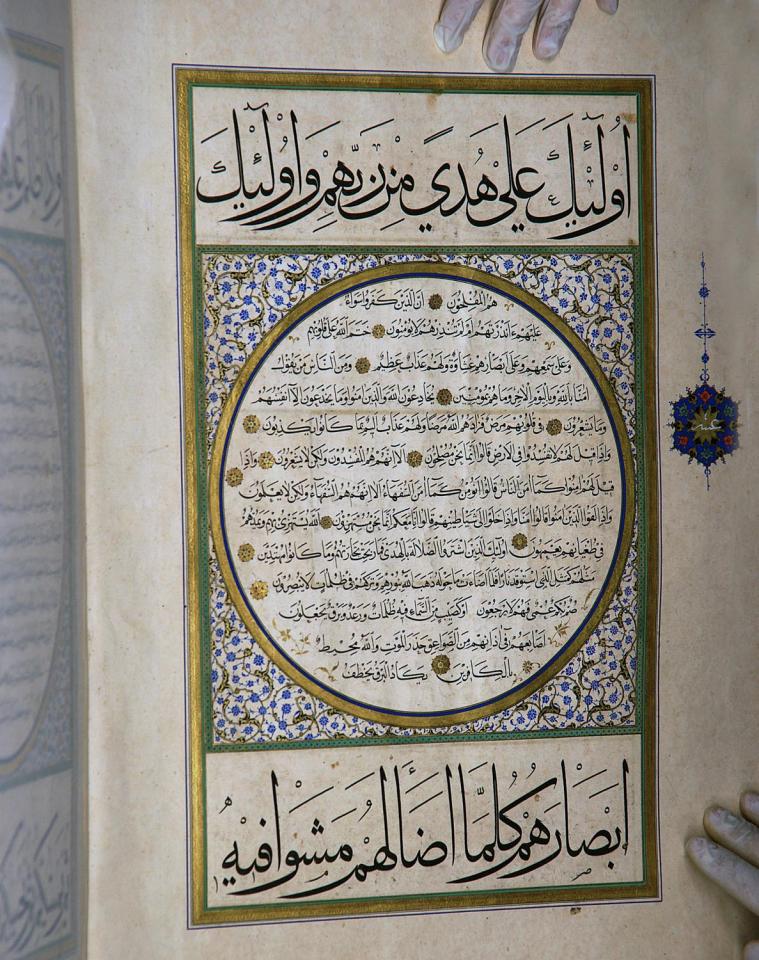 اُولٰٓئِكَ عَلٰى هُدًى مِنْ رَبِّهِمْ وَاُولٰٓئِكَ
هُمُ الْمُفْلِحُونَ اِنَّ الَّذِينَ كَفَرُوا سَوَاءٌ
عَلَيْهِمْ ءَاَنْذَرْتَهُمْ اَمْ لَمْ تُنْذِرْهُمْ لَا يُؤْمِنُونَ خَتَمَ اللهُ عَلٰى قُلُوبِهِمْ
وَعَلٰى سَمْعِهِمْ وَعَلٰى اَبْصَارِهِمْ غِشَاوَةٌ وَلَهُمْ عَذَابٌ عَظِيمٌ وَمِنَ النَّاسِ مَنْ يَقُولُ
اٰمَنَّا بِاللهِ وَبِالْيَوْمِ الْاٰخِرِ وَمَا هُمْ بِمُؤْمِنِينَ يُخَادِعُونَ اللهَ وَالَّذِينَ اٰمَنُوا وَمَا يَخْدَعُونَ اِلَّا اَنْفُسَهُمْ
وَمَا يَشْعُرُونَ فِي قُلُوبِهِمْ مَرَضٌ فَزَادَهُمُ اللهُ مَرَضًا وَلَهُمْ عَذَابٌ اَلِيمٌ بِمَا كَانُوا يَكْذِبُونَ
وَاِذَا قِيلَ لَهُمْ لَا تُفْسِدُوا فِي الْاَرْضِ قَالُوا اِنَّمَا نَحْنُ مُصْلِحُونَ اَلَا اِنَّهُمْ هُمُ الْمُفْسِدُونَ وَلٰكِنْ لَا يَشْعُرُونَ وَاِذَا
قِيلَ لَهُمْ اٰمِنُوا كَمَا اٰمَنَ النَّاسُ قَالُوا اَنُؤْمِنُ كَمَا اٰمَنَ السُّفَهَاءُ اَلَا اِنَّهُمْ هُمُ السُّفَهَاءُ وَلٰكِنْ لَا يَعْلَمُونَ
وَاِذَا لَقُوا الَّذِينَ اٰمَنُوا قَالُوا اٰمَنَّا وَاِذَا خَلَوْا اِلٰى شَيَاطِينِهِمْ قَالُوا اِنَّا مَعَكُمْ اِنَّمَا نَحْنُ مُسْتَهْزِؤُنَ اَللهُ يَسْتَهْزِئُ بِهِمْ وَيَمُدُّهُمْ
فِي طُغْيَانِهِمْ يَعْمَهُونَ اُولٰئِكَ الَّذِينَ اشْتَرَوُا الضَّلَالَةَ بِالْهُدٰى فَمَا رَبِحَتْ تِجَارَتُهُمْ وَمَا كَانُوا مُهْتَدِينَ
مَثَلُهُمْ كَمَثَلِ الَّذِي اسْتَوْقَدَ نَارًا فَلَمَّا اَضَاءَتْ مَا حَوْلَهُ ذَهَبَ اللهُ بِنُورِهِمْ وَتَرَكَهُمْ فِي ظُلُمَاتٍ لَا يُبْصِرُونَ
صُمٌّ بُكْمٌ عُمْيٌ فَهُمْ لَا يَرْجِعُونَ اَوْ كَصَيِّبٍ مِنَ السَّمَاءِ فِيهِ ظُلُمَاتٌ وَرَعْدٌ وَبَرْقٌ يَجْعَلُونَ
اَصَابِعَهُمْ فِي اٰذَانِهِمْ مِنَ الصَّوَاعِقِ حَذَرَ الْمَوْتِ وَاللهُ مُحِيطٌ
بِالْكَافِرِينَ يَكَادُ الْبَرْقُ يَخْطَفُ
اَبْصَارَهُمْ كُلَّمَا اَضَاءَ لَهُمْ مَشَوْا فِيهِ